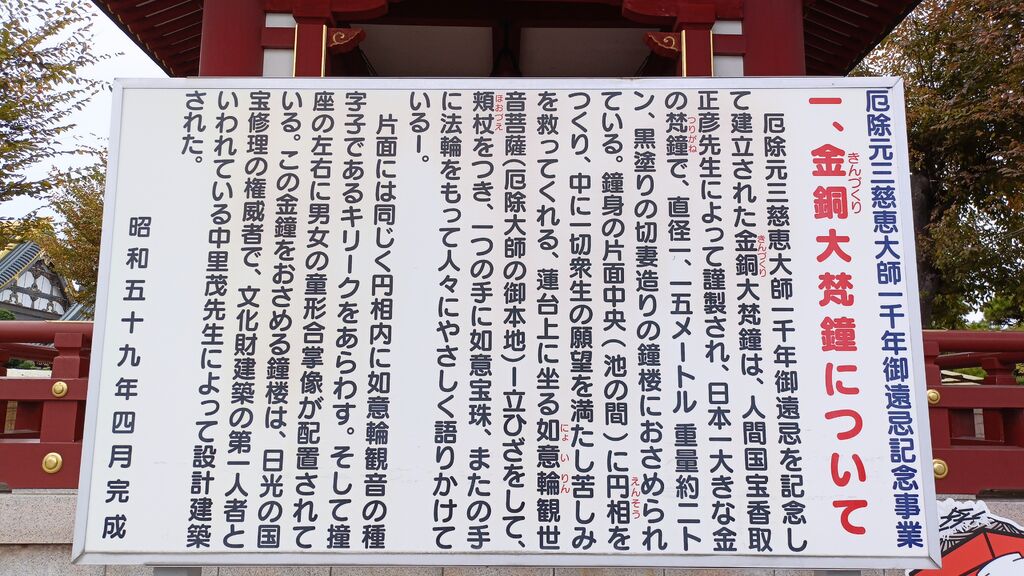 厄除元三慈恵大師一千年御遠忌記念事業
一、金銅大梵鐘について
きんづくり
厄除元三慈恵大師一千年御遠忌を記念し
て建立された金銅大梵鐘は、人間国宝香取
きんづくり
正彦先生によって謹製され、日本一大きな金
の梵鐘で、直径一、一五メートル 重量約二ト
つりがね
ン、黒塗りの切妻造りの鐘楼におさめられ
ている。鐘身の片面中央（池の間）に円相を
えんそう
つくり、中に一切衆生の願望を満たし苦しみ
を救ってくれる、蓮台上に坐る如意輪観世
にょいりん
音菩薩（厄除大師の御本地）ー立ひざをして、
頬杖をつき、一つの手に如意宝珠、またの手
ほおづえ
に法輪をもって人々にやさしく語りかけて
いるー。
片面には同じく円相内に如意輪観音の種
字子であるキリークをあらわす。そして撞
座の左右に男女の童形合掌像が配置されて
いる。この金鐘をおさめる鐘楼は、日光の国
宝修理の権威者で、文化財建築の第一人者と
いわれている中里茂先生によって設計建築
された。
昭和五十九年四月完成